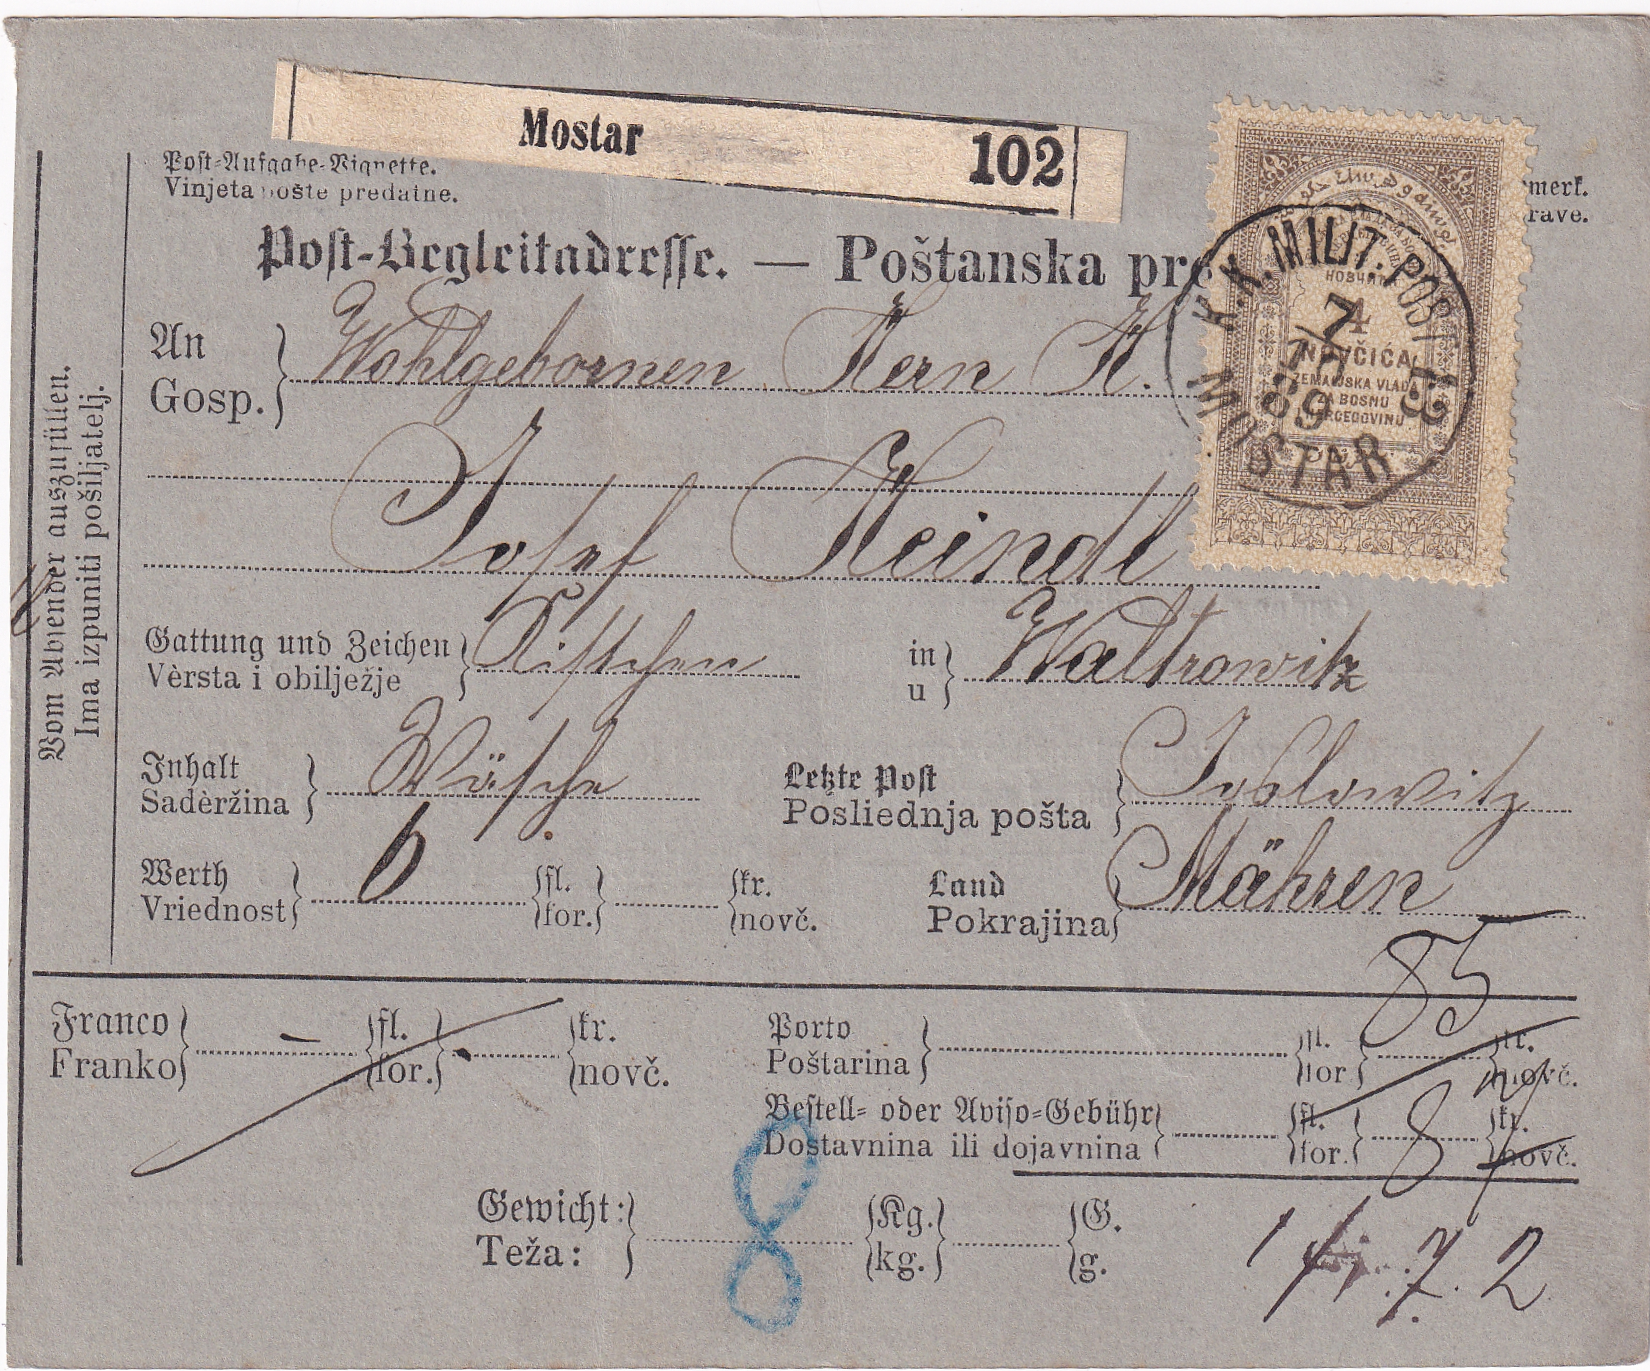 Mostar 102
Post-Aufgabe-Vignette.
Vinjeta pošte predatne.
merk.
rave.
Post-Begleitadresse. — Poštanska pre
An Wohlgebornen Herrn H.
Gosp.
Josef Heindl
Gattung und Zeichen Kistchen
Vèrsta i obilježje
in Waltrowitz
u
Inhalt Wäsche
Sadèržina
Letzte Post Joslowitz
Posliednja pošta
Werth 6 fl. kr.
Vriednost for. novč.
Land Mähren
Pokrajina
Vom Absender auszufüllen.
Ima izpuniti pošiljatelj.
НОВЧ
4
NOVČIĆA
ZEMALJSKA VLADA
ZA BOSNU
HERCEGOVINU
K.K. MILIT. POST
7
10
89
MOSTAR
85
Franco — fl. kr.
Franko for. novč.
Porto fl. kr.
Poštarina for novč.
Bestell- oder Aviso-Gebühr fl. 8 kr.
Dostavnina ili dojavnina for. novč.
Gewicht: 8 Kg. G.
Teža: kg. g.